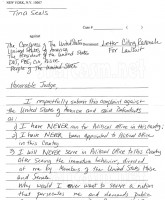 NEW YORK, N.Y. 10007
Tina Seals
Against
The Congress of the United States
United States of America
The President of the United States
People of the United States
Letter
Honorable Judge,
I respectfully submit this complaint against
the United States of America and said Defendants
as:
1) I have NEVER ran for Political office in this Country;
2) I have NEVER been appointed to Political Office
in this Country
3) I will NEVER serve in Political Office in this Country
after seeing the immature behavior, directed
at me by Members of the United States House
and Senate.
Why would I ever want to serve a nation
that persecutes me and demands public